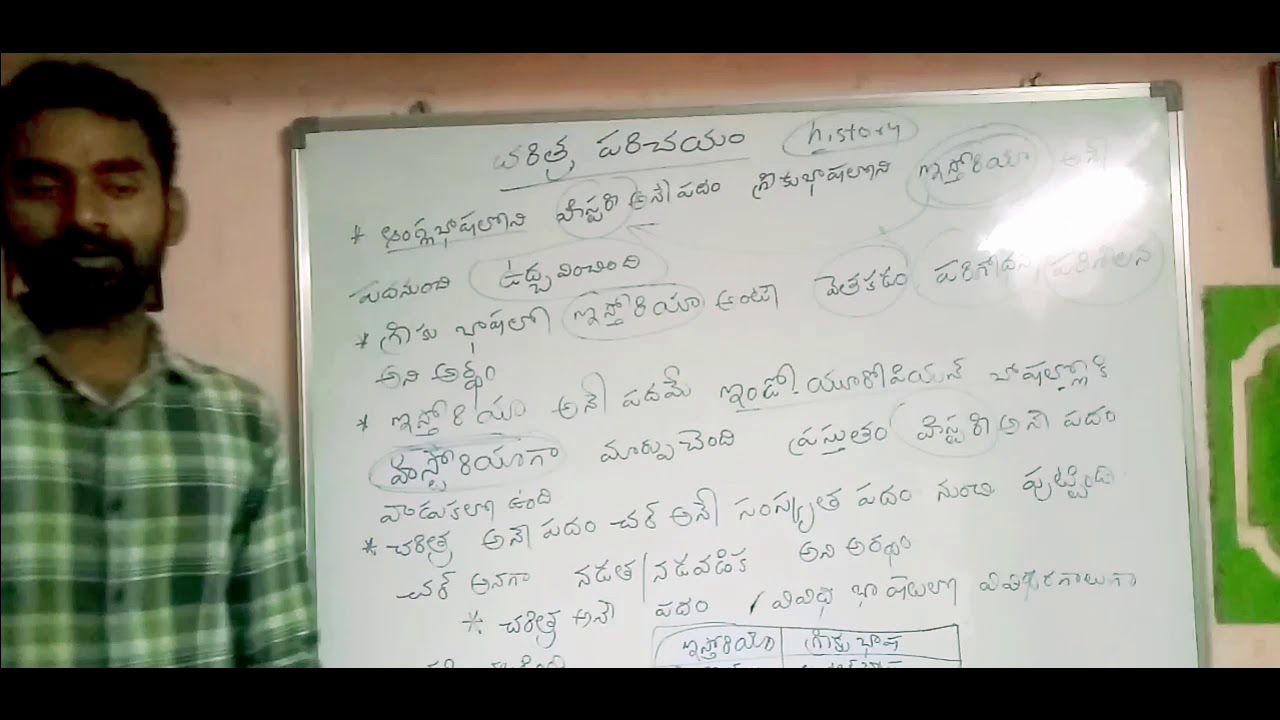 చరిత్ర పరిచయం history
* ఆంగ్లభాషలోని హిస్టరీ అనే పదం గ్రీకుభాషలోని ఇస్తోరియా అనే
పదనుంచి ఉద్భవించింది
* గ్రీకు భాషలో ఇస్తోరియా అంటే వెతకడం పరిశోధన, పరిశీలన
అని అర్థం
* ఇస్తోరియా అనే పదమే ఇండో-యూరోపియన్ భాషల్లోకి
హిస్టోరియాగా మార్పుచెంది ప్రస్తుతం హిస్టరీ అనే పదం
వాడుకలో ఉంది
* చరిత్ర అనే పదం చర్ అనే సంస్కృత పదం నుంచి పుట్టింది
చర్ అనగా నడత/నడవడిక అని అర్థం
* చరిత్ర అనే పదం వివిధ భాషలలో వివిధరకాలుగా
ఇస్తోరియా గ్రీకు భాష